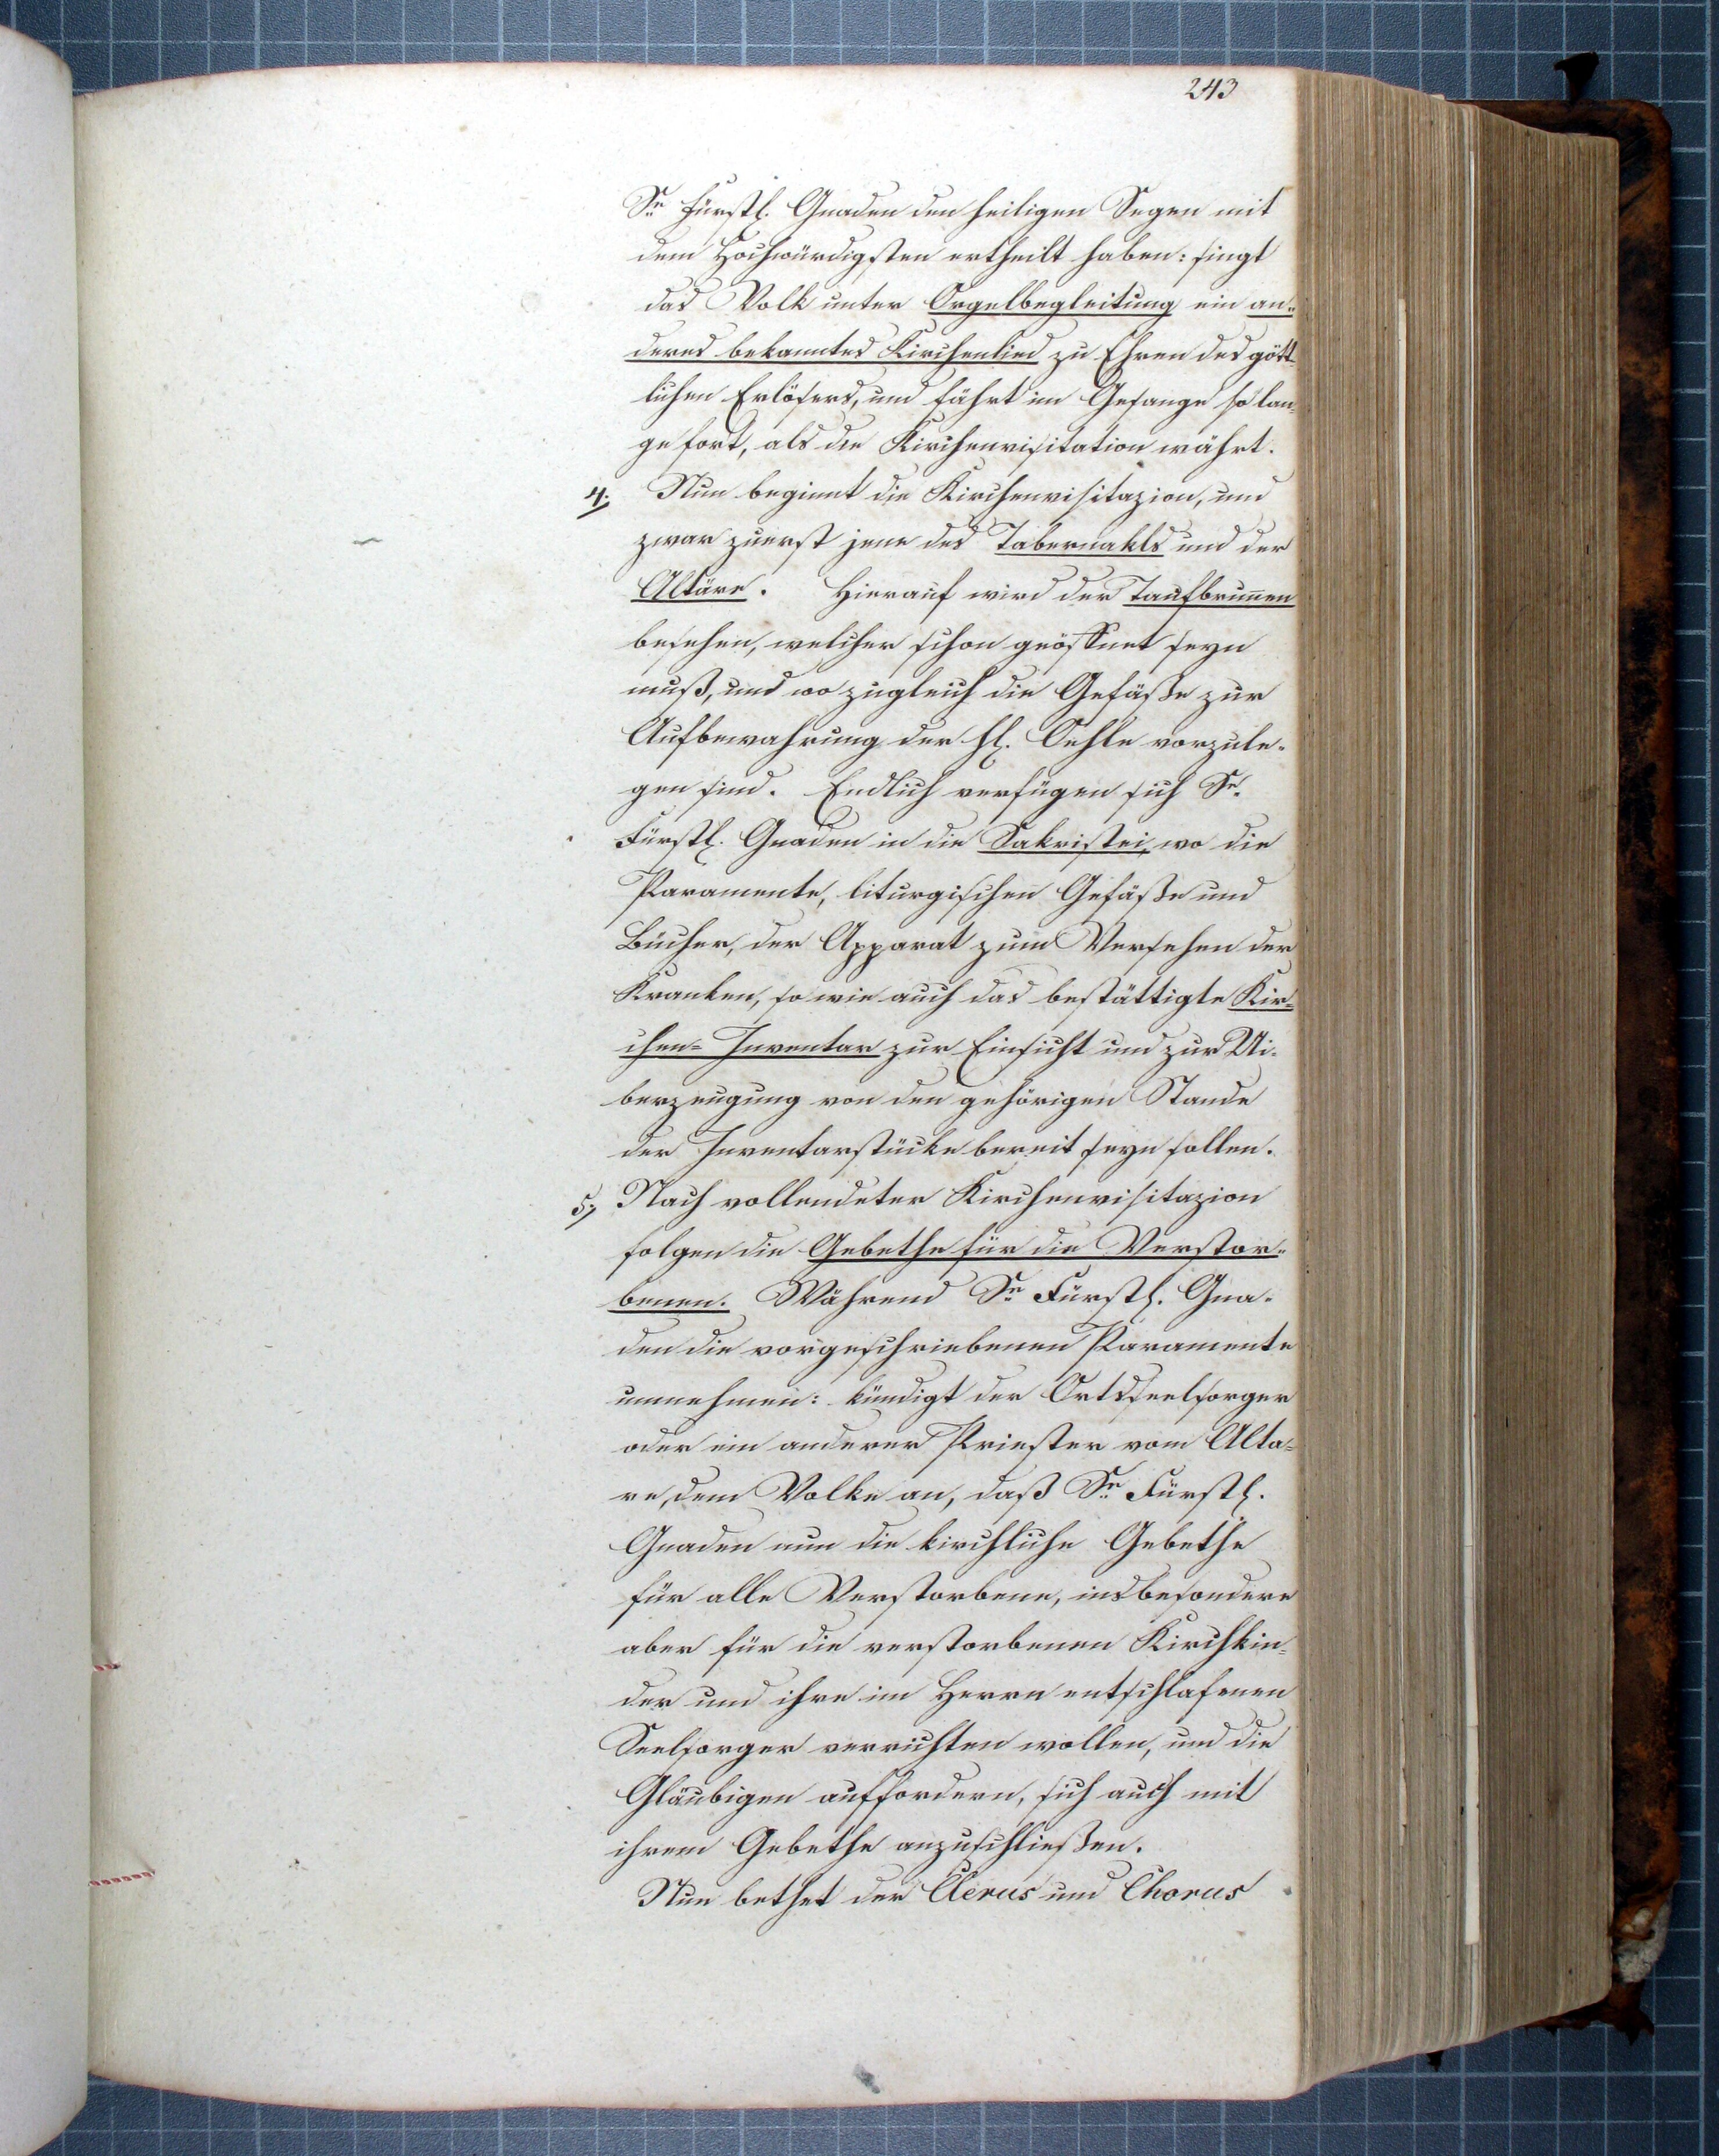 243
Se fürstl. Gnaden den heiligen Segen mit
dem Hochwürdigsten ertheilt haben: singt
das Volk unter Orgelbegleitung ein an-
deres bekanntes Kirchenlied zu Ehren des gött-
lichen Erlösers, und fährt im Gesange so lan-
ge fort, als die Kirchenvisitation währt.
4. Nun beginnt die Kirchenvisitazion, und
zwar zuerst jene des Tabernakls und der
Altäre. Hierauf wird der Taufbrun̄en
besehen, welcher schon geöffnet seyn
muß, und wo zugleich die Gefäße zur
Aufbewahrung der hl. Oehle vorzule-
gen sind. Endlich verfügen sich Se.
Fürstl. Gnaden in die Sakristei, wo die
Paramente, liturgischen Gefäße und
Bücher, der Apparat zum Versehen der
Kranken, so wie auch das bestättigte Kir-
chen-Inventar zur Einsicht und zur Ui-
berzeugung von den gehörigen Stande
der Inventarstücke bereit seyn sollen.
5, Nach vollendeter Kirchenvisitazion
folgen die Gebethe für die Verstor-
benen. Während Se Fürstl. Gna-
den die vorgeschriebenen Paramente
umnehmen: kündigt der Ortsseelsorger
oder ein anderer Priester vom Alta-
re, dem Volke an, daß Se Fürstl.
Gnaden nun die kirchliche Gebethe
für alle Verstorbene, insbesondere
aber für die verstorbenen Kirchkin-
der und ihre im Herrn entschlafenen
Seelsorger verrichten wollen, und die
Gläubigen auffordern, sich auch mit
ihrem Gebethe anzuschließen.
Nun bethet der Clerus und Chorus